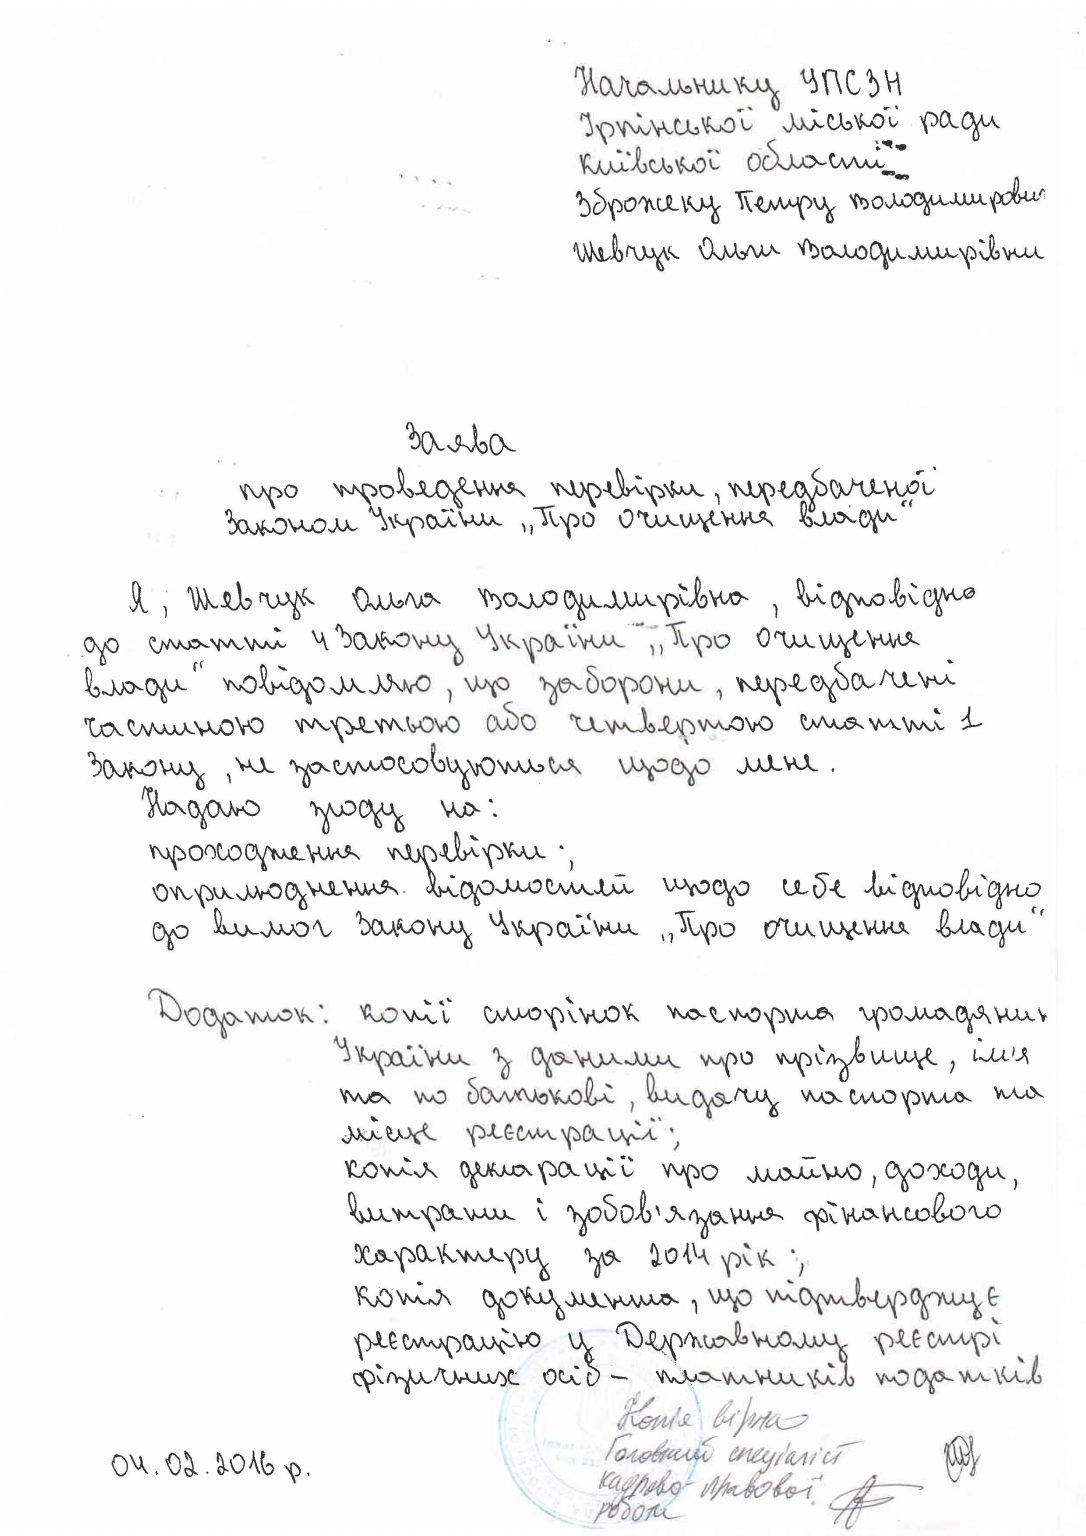 Начальнику УПСЗН
Ірпінської міської ради
Київської області
Зброжеку Петру Володимирович
Шевчук Ольги Володимирівни
Заява
про проведення перевірки, передбаченої
Законом України „Про очищення влади“
Я, Шевчук Ольга Володимирівна, відповідно
до статті 4 Закону України „Про очищення
влади“ повідомляю, що заборони, передбачені
частиною третьою або четвертою статті 1
Закону, не застосовуються щодо мене.
Надаю згоду на:
проходження перевірки;
оприлюднення відомостей щодо себе відповідно
до вимог Закону України „Про очищення влади“
Додаток: копії сторінок паспорта громадянин
України з даними про прізвище, ім'я
та по батькові, видачу паспорта та
місце реєстрації;
копія декларації про майно, доходи,
витрати і зобов'язання фінансового
характеру за 2014 рік;
копія документа, що підтверджує
реєстрацію у Державному реєстрі
фізичних осіб – платників податків
Копія вірна
Головний спеціаліст
кадрово-правової
роботи
04.02.2016 р.